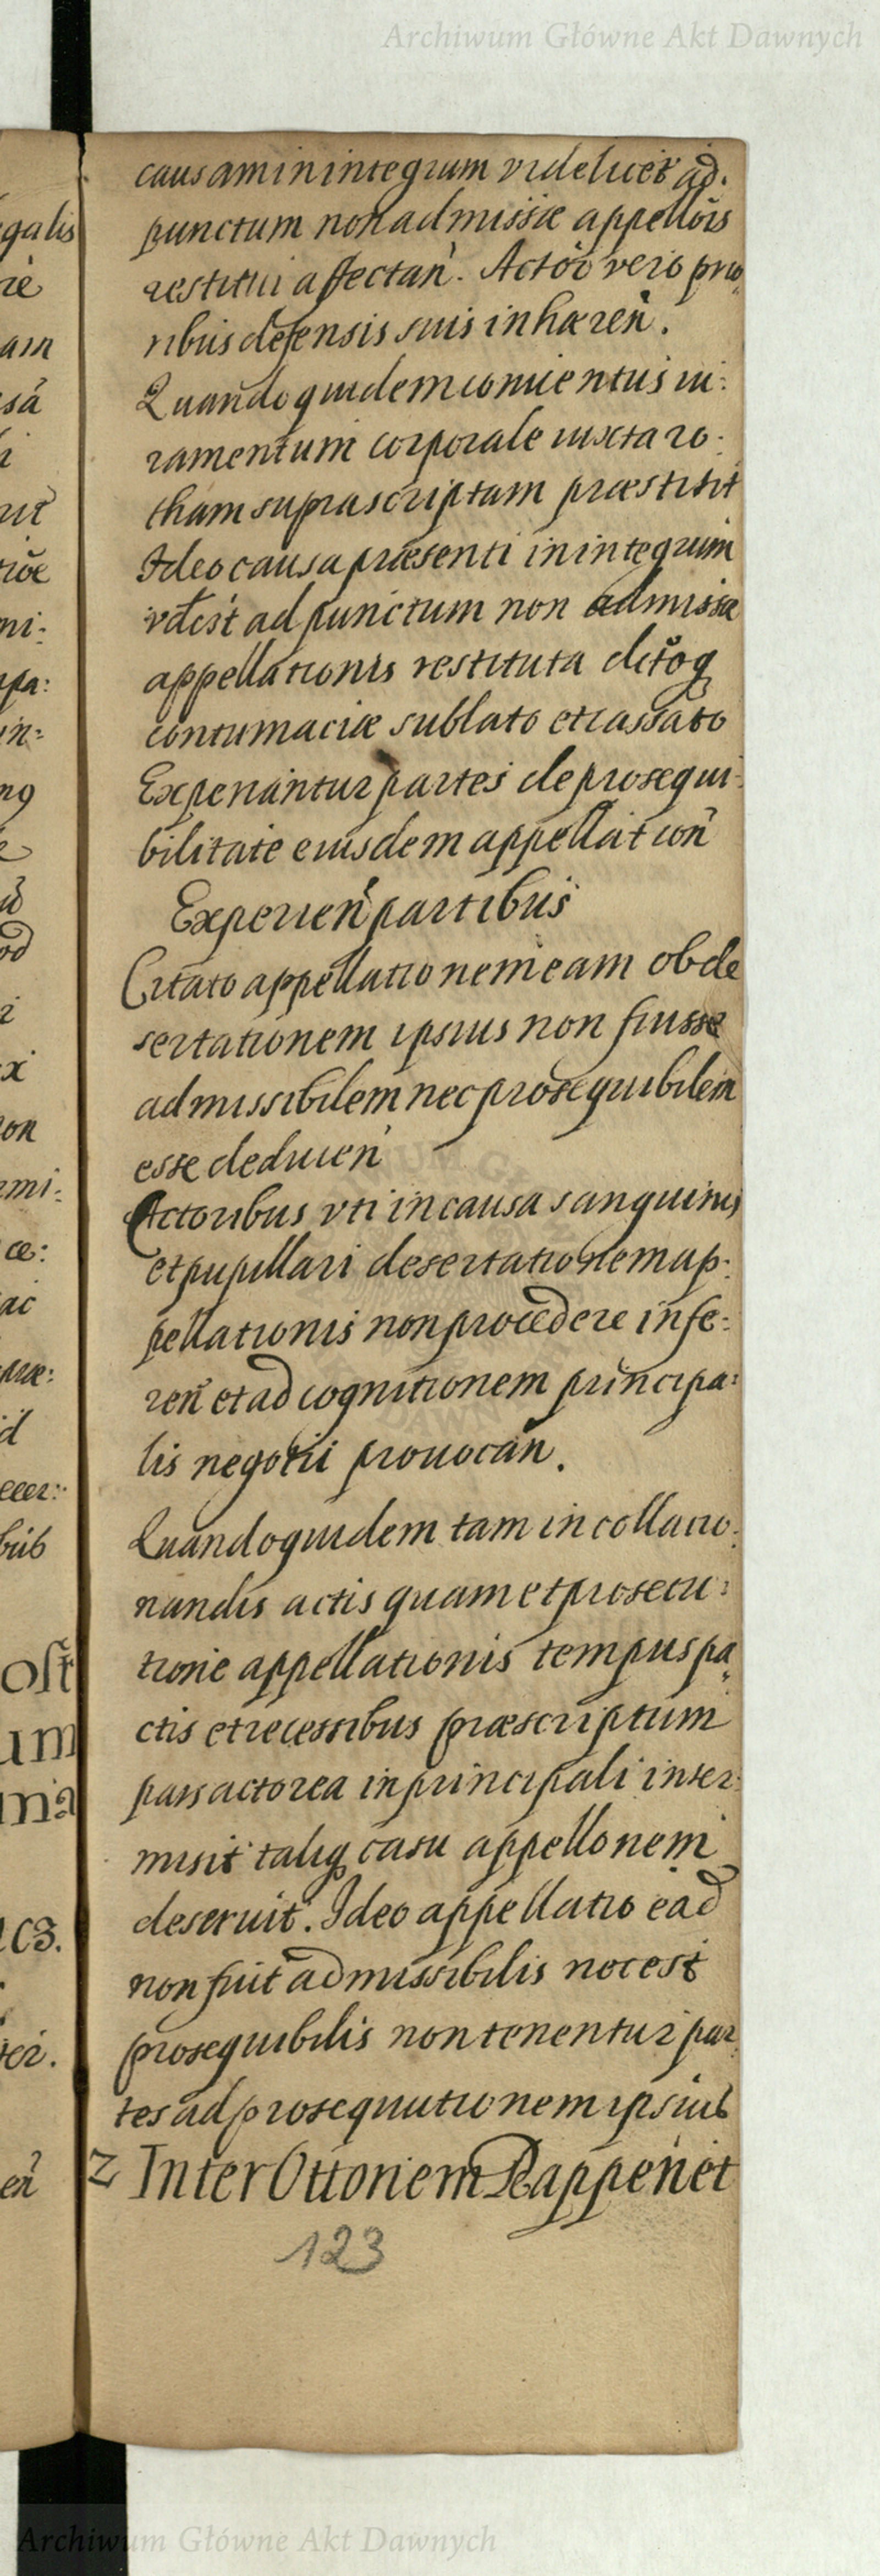 Archiwum Główne Akt Dawnych
causam in integrum videlicet ad.
punctum non admissæ appellõis
restitui affectan̄. Actõr vero prio„
ribus defensis suis inhæren̄.
Quandoquidem convientus iu:
ramentum corporale iuxta ro:
tham suprascriptam præstitit
Ideo causa præsenti in integrum
vdest ad punctum non admissæ
appellationis restituta ditoq
contumaciæ sublato et cassato
Experiantur partes de prosequi:
bilitate eiusdem appellation̄
Experien̄ partibus
Citato appellationem eam ob de
sertationem ipsius non fuisse
admissibilem nec prosequibilem
esse deducen̄
Actoribus vti in causa sanguinis
et pupillari desertationem ap:
pellationis non procedere infe:
ren̄ et ad cognitionem principa:
lis negotii provocan̄.
Quandoquidem tam in collatio:
nandis actis quam et prosecu:
tione appellationis tempus pa„
ctis et recessibus præscriptum
pars actorea in principali inter:
misit taliq casu appellonem
deseruit. Ideo appellatio ead
non fuit admissibilis nec est
prosequibilis non tenentur par:
tes ad prosequutionem ipsius
2 Inter Ottonem Rappen et
123
egalis
rè
am
sā
i
mi:
pa:
in:
x
non
rmi:
ce:
ac
præ:
id
bus
ost
um
ına
acz.
Archiwum Główne Akt Dawnych